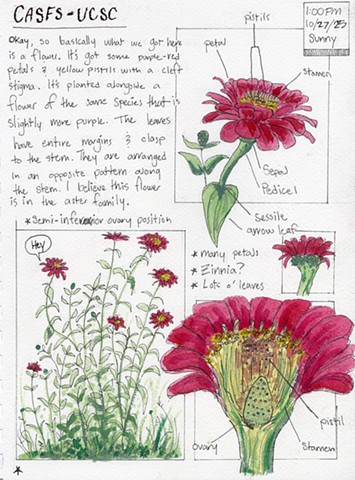 CASFS-UCSC
1:00PM
10/27/23
Sunny
Okay, so basically what we got here
is a flower. It's got some purple-red
petals & yellow pistils with a cleft
stigma. It's planted alongside a
flower of the same species that is
slightly more purple. The leaves
have entire margins & clasp
to the stem. They are arranged
in an opposite pattern along
the stem. I believe this flower
is in the aster family.
*Semi-inferior ovary position
pistils
petal
stamen
Sepal
Pedicel
sessile
arrow leaf
* many petals
* Zinnia?
* Lots o' leaves
Hey
pistil
Ovary
Stamen